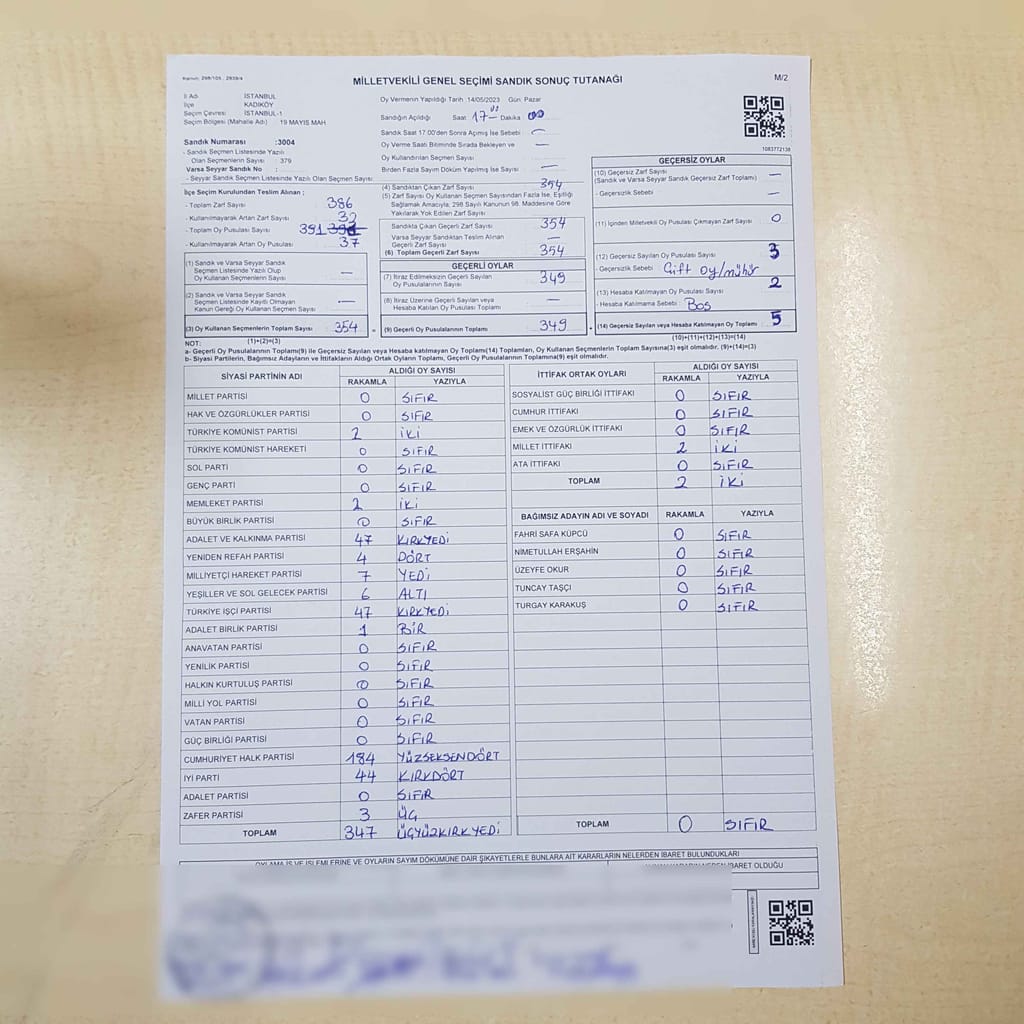 Kanun: 298/105 - 2839/4
MİLLETVEKİLİ GENEL SEÇİMİ SANDIK SONUÇ TUTANAĞI
M/2
İl Adı İSTANBUL
İlçe KADIKÖY
Seçim Çevresi: İSTANBUL-1
Seçim Bölgesi (Mahalle Adı) : 19 MAYIS MAH
Sandık Numarası :3004
- Sandık Seçmen Listesinde Yazılı
Olan Seçmenlerin Sayısı : 379
Varsa Seyyar Sandık No :
- Seyyar Sandık Seçmen Listesinde Yazılı Olan Seçmen Sayısı:
İlçe Seçim Kurulundan Teslim Alınan :
- Toplam Zarf Sayısı : 386
- Kullanılmayarak Artan Zarf Sayısı : 32
- Toplam Oy Pusulası Sayısı : 391
- Kullanılmayarak Artan Oy Pusulası : 37
(1) Sandık ve Varsa Seyyar Sandık
Seçmen Listesinde Yazılı Olup
Oy Kullanan Seçmenlerin Sayısı —
(2) Sandık ve Varsa Seyyar Sandık
Seçmen Listesinde Kayıtlı Olmayan
Kanun Gereği Oy Kullanan Seçmen Sayısı —
(3) Oy Kullanan Seçmenlerin Toplam Sayısı 354 =
(1)+(2)=(3)
Oy Vermenin Yapıldığı Tarih :14/05/2023 Gün: Pazar
Sandığın Açıldığı Saat 17 00 Dakika 00
Sandık Saat 17.00'den Sonra Açımış İse Sebebi : —
Oy Verme Saati Bitiminde Sırada Bekleyen ve —
Oy Kullandırılan Seçmen Sayısı
Birden Fazla Sayım Döküm Yapılmış İse Sayısı : —
(4) Sandıktan Çıkan Zarf Sayısı 354
(5) Zarf Sayısı Oy Kullanan Seçmen Sayısından Fazla İse, Eşitliği
Sağlamak Amacıyla; 298 Sayılı Kanunun 98. Maddesine Göre
Yakılarak Yok Edilen Zarf Sayısı
Sandıkta Çıkan Geçerli Zarf Sayısı 354
Varsa Seyyar Sandıktan Teslim Alınan
Geçerli Zarf Sayısı —
(6) Toplam Geçerli Zarf Sayısı 354
GEÇERLİ OYLAR
(7) İtiraz Edilmeksizin Geçerli Sayılan
Oy Pusulalarının Sayısı 349
(8) İtiraz Üzerine Geçerli Sayılan veya
Hesaba Katılan Oy Pusulası Toplamı —
(9) Geçerli Oy Pusulalarının Toplamı 349 +
1083772138
GEÇERSİZ OYLAR
(10) Geçersiz Zarf Sayısı
(Sandık ve Varsa Seyyar Sandık Geçersiz Zarf Toplamı) —
- Geçersizlik Sebebi : —
(11) İçinden Milletvekili Oy Pusulası Çıkmayan Zarf Sayısı 0
(12) Geçersiz Sayılan Oy Pusulası Sayısı 3
- Geçersizlik Sebebi : Çift oy/mühür
(13) Hesaba Katılmayan Oy Pusulası Sayısı 2
- Hesaba Katılmama Sebebi : Boş
(14) Geçersiz Sayılan veya Hesaba Katılmayan Oy Toplamı 5
(10)+(11)+(12)+(13)=(14)
NOT:
a- Geçerli Oy Pusulalarının Toplamı(9) ile Geçersiz Sayılan veya Hesaba katılmayan Oy Toplamı(14) Toplamları, Oy Kullanan Seçmenlerin Toplam Sayısına(3) eşit olmalıdır. (9)+(14)=(3)
b- Siyasi Partilerin, Bağımsız Adayların ve İttifakların Aldığı Ortak Oyların Toplamı, Geçerli Oy Pusulalarının Toplamına(9) eşit olmalıdır.
SİYASİ PARTİNİN ADI ALDIĞI OY SAYISI
RAKAMLA YAZIYLA
MİLLET PARTİSİ 0 SIFIR
HAK VE ÖZGÜRLÜKLER PARTİSİ 0 SIFIR
TÜRKİYE KOMÜNİST PARTİSİ 2 İKİ
TÜRKİYE KOMÜNİST HAREKETİ 0 SIFIR
SOL PARTİ 0 SIFIR
GENÇ PARTİ 0 SIFIR
MEMLEKET PARTİSİ 2 İKİ
BÜYÜK BİRLİK PARTİSİ 0 SIFIR
ADALET VE KALKINMA PARTİSİ 47 KIRKYEDİ
YENİDEN REFAH PARTİSİ 4 DÖRT
MİLLİYETÇİ HAREKET PARTİSİ 7 YEDİ
YEŞİLLER VE SOL GELECEK PARTİSİ 6 ALTI
TÜRKİYE İŞÇİ PARTİSİ 47 KIRKYEDİ
ADALET BİRLİK PARTİSİ 1 BİR
ANAVATAN PARTİSİ 0 SIFIR
YENİLİK PARTİSİ 0 SIFIR
HALKIN KURTULUŞ PARTİSİ 0 SIFIR
MİLLİ YOL PARTİSİ 0 SIFIR
VATAN PARTİSİ 0 SIFIR
GÜÇ BİRLİĞİ PARTİSİ 0 SIFIR
CUMHURİYET HALK PARTİSİ 184 YÜZSEKSENDÖRT
İYİ PARTİ 44 KIRKDÖRT
ADALET PARTİSİ 0 SIFIR
ZAFER PARTİSİ 3 ÜÇ
TOPLAM 347 ÜÇYÜZKIRKYEDİ
İTTİFAK ORTAK OYLARI ALDIĞI OY SAYISI
RAKAMLA YAZIYLA
SOSYALİST GÜÇ BİRLİĞİ İTTİFAKI 0 SIFIR
CUMHUR İTTİFAKI 0 SIFIR
EMEK VE ÖZGÜRLÜK İTTİFAKI 0 SIFIR
MİLLET İTTİFAKI 2 İKİ
ATA İTTİFAKI 0 SIFIR
TOPLAM 2 İKİ
BAĞIMSIZ ADAYIN ADI VE SOYADI RAKAMLA YAZIYLA
FAHRİ SAFA KÜPCÜ 0 SIFIR
NİMETULLAH ERŞAHİN 0 SIFIR
ÜZEYFE OKUR 0 SIFIR
TUNCAY TAŞÇI 0 SIFIR
TURGAY KARAKUŞ 0 SIFIR
TOPLAM 0 SIFIR
OYLAMA İŞ VE İŞLEMLERİNE VE OYLARIN SAYIM DÖKÜMÜNE DAİR ŞİKAYETLERLE BUNLARA AİT KARARLARIN NELERDEN İBARET BULUNDUKLARI
NEDEN İBARET OLDUĞU